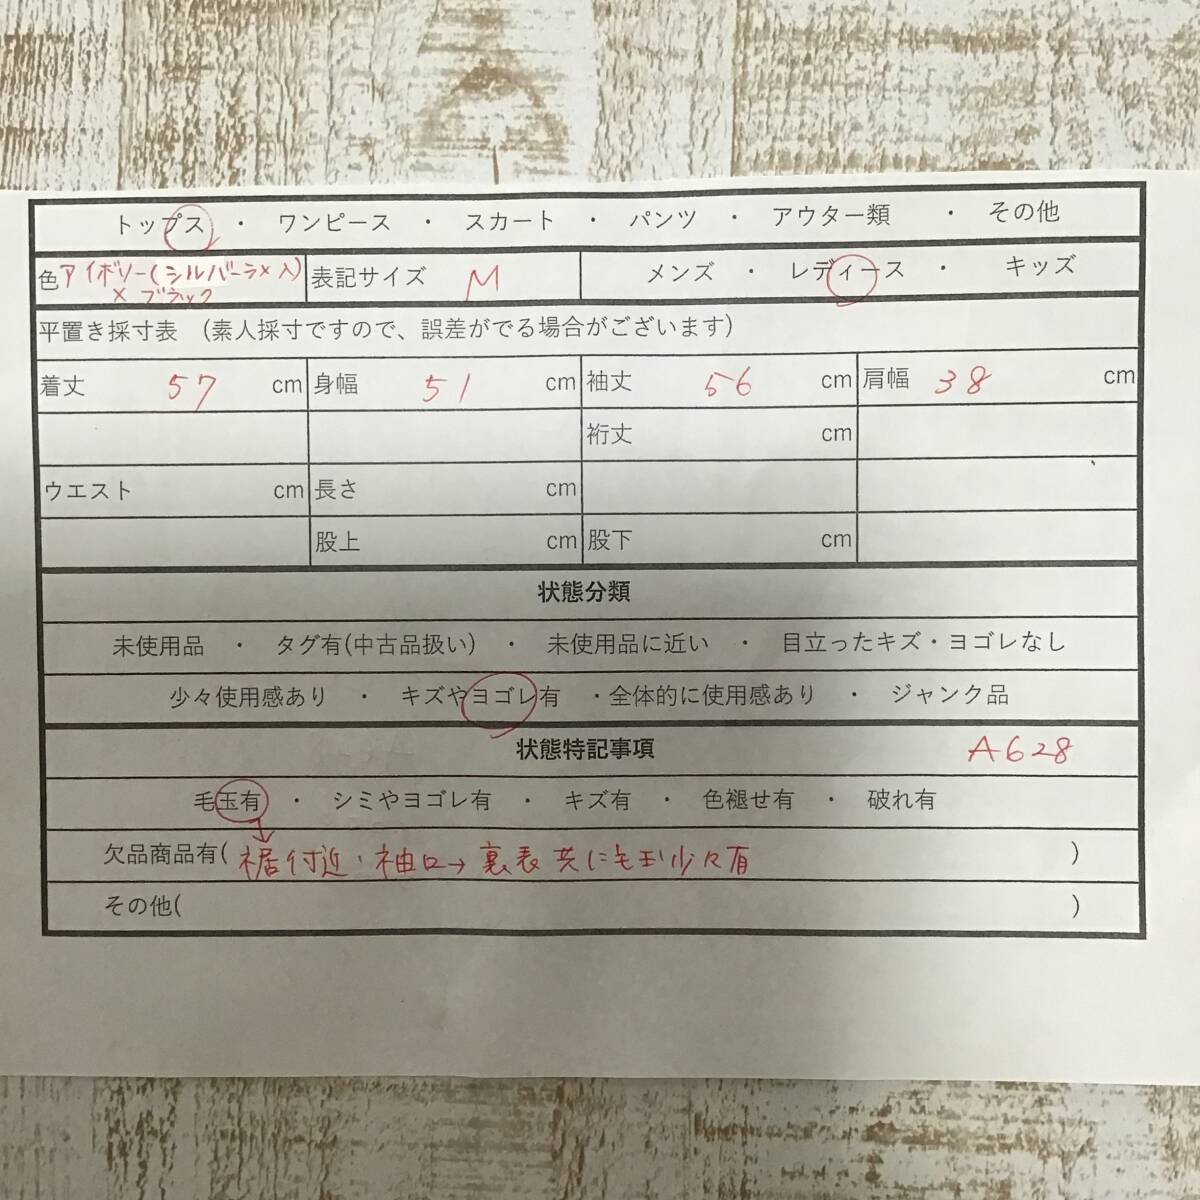 トップス ・ ワンピース ・ スカート ・ パンツ ・ アウター類 ・ その他
色 アイボリー(シルバーラメ入) 表記サイズ M メンズ ・ レディース ・ キッズ
× ブラック
平置き採寸表 (素人採寸ですので、誤差がでる場合がございます)
着丈 57 cm 身幅 51 cm 袖丈 56 cm 肩幅 38 cm
裄丈 cm
ウエスト cm 長さ cm
股上 cm 股下 cm
状態分類
未使用品 ・ タグ有(中古品扱い) ・ 未使用品に近い ・ 目立ったキズ・ヨゴレなし
少々使用感あり ・ キズやヨゴレ有 ・全体的に使用感あり ・ ジャンク品
状態特記事項 A628
毛玉有 ・ シミやヨゴレ有 ・ キズ有 ・ 色褪せ有 ・ 破れ有
欠品商品有( 裾付近・袖口→裏表共に毛玉少々有 )
その他( )